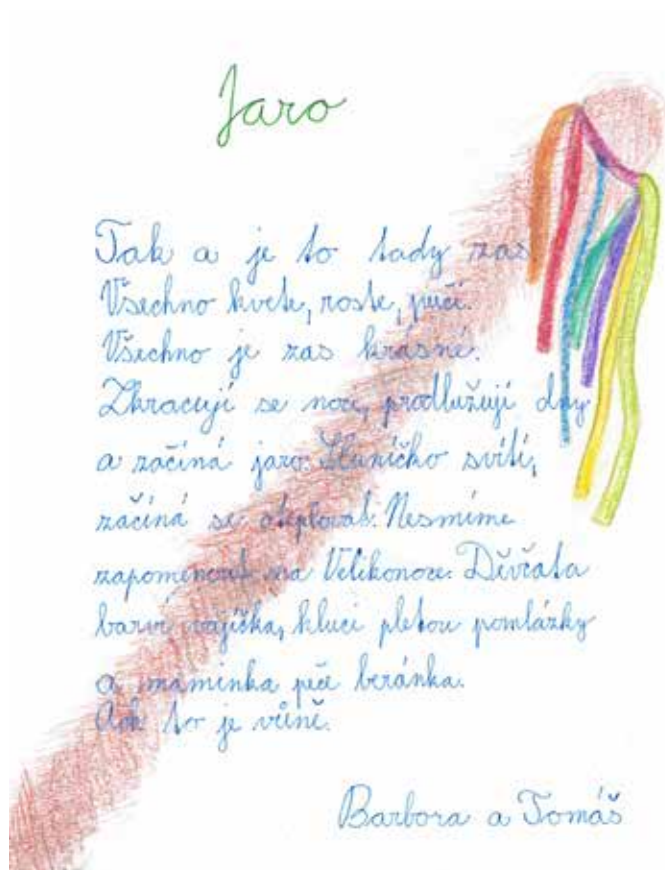 Jaro
Tak a je to tady zas
Všechno kvete, roste, pučí.
Všechno je zas krásné.
Zkracují se noci, prodlužují dny
a začíná jaro. Sluníčko svítí,
začíná se oteplovat. Nesmíme
zapomenout na Velikonoce. Děvčata
barví vajíčka, kluci pletou pomlázky
a maminka peče beránka.
Ach to je vůně.
Barbora a Tomáš